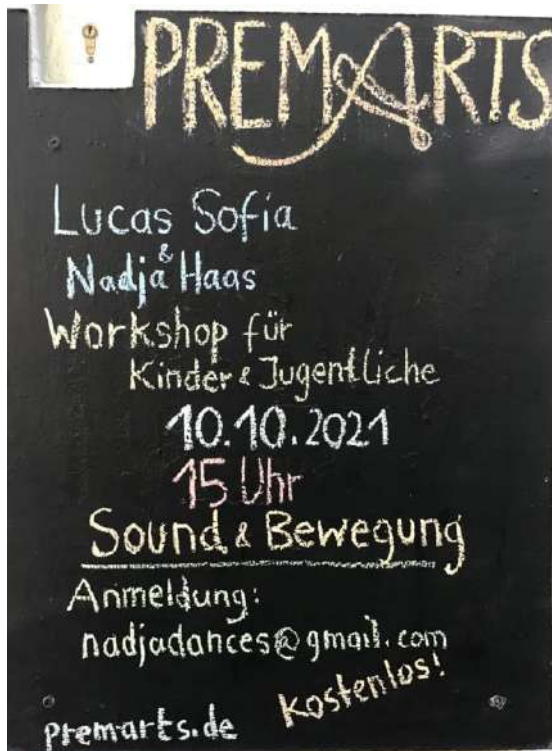 PREMARTS
Lucas Sofia
&
Nadja Haas
Workshop für
Kinder & Jugentliche
10.10.2021
15 Uhr
Sound & Bewegung
Anmeldung:
nadjadances@gmail.com
kostenlos!
premarts.de